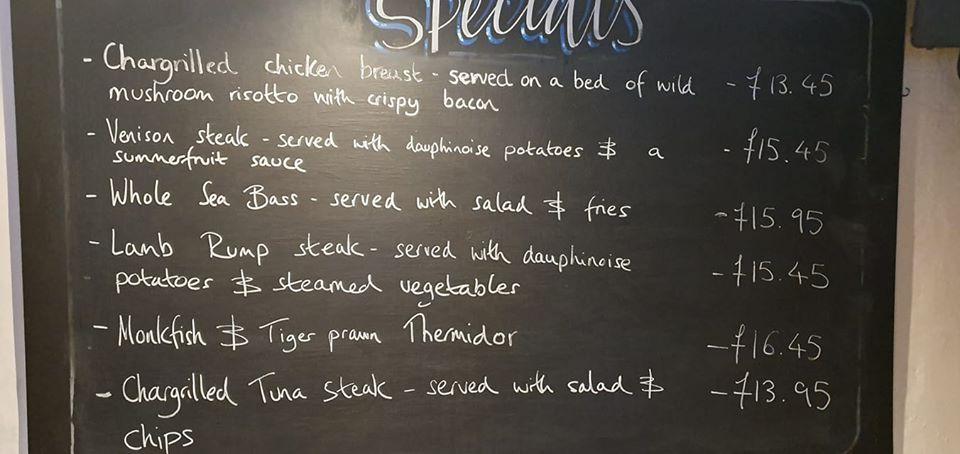 Specials
- Chargrilled chicken breast - served on a bed of wild - £13.45
mushroom risotto with crispy bacon
- Venison steak - served with dauphinoise potatoes & a - £15.45
summerfruit sauce
- Whole Sea Bass - served with salad & fries - £15.95
- Lamb Rump steak - served with dauphinoise - £15.45
potatoes & steamed vegetables
- Monkfish & Tiger prawn Thermidor - £16.45
- Chargrilled Tuna steak - served with salad & - £13.95
chips